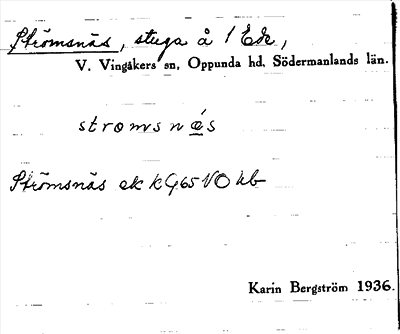 Strömsnäs, stuga å 1 Ek,
V. Vingåkers sn, Oppunda hd, Södermanlands län.
stromsnǽs
Strömsnäs ek KG65 VO hb
Karin Bergström 1936.